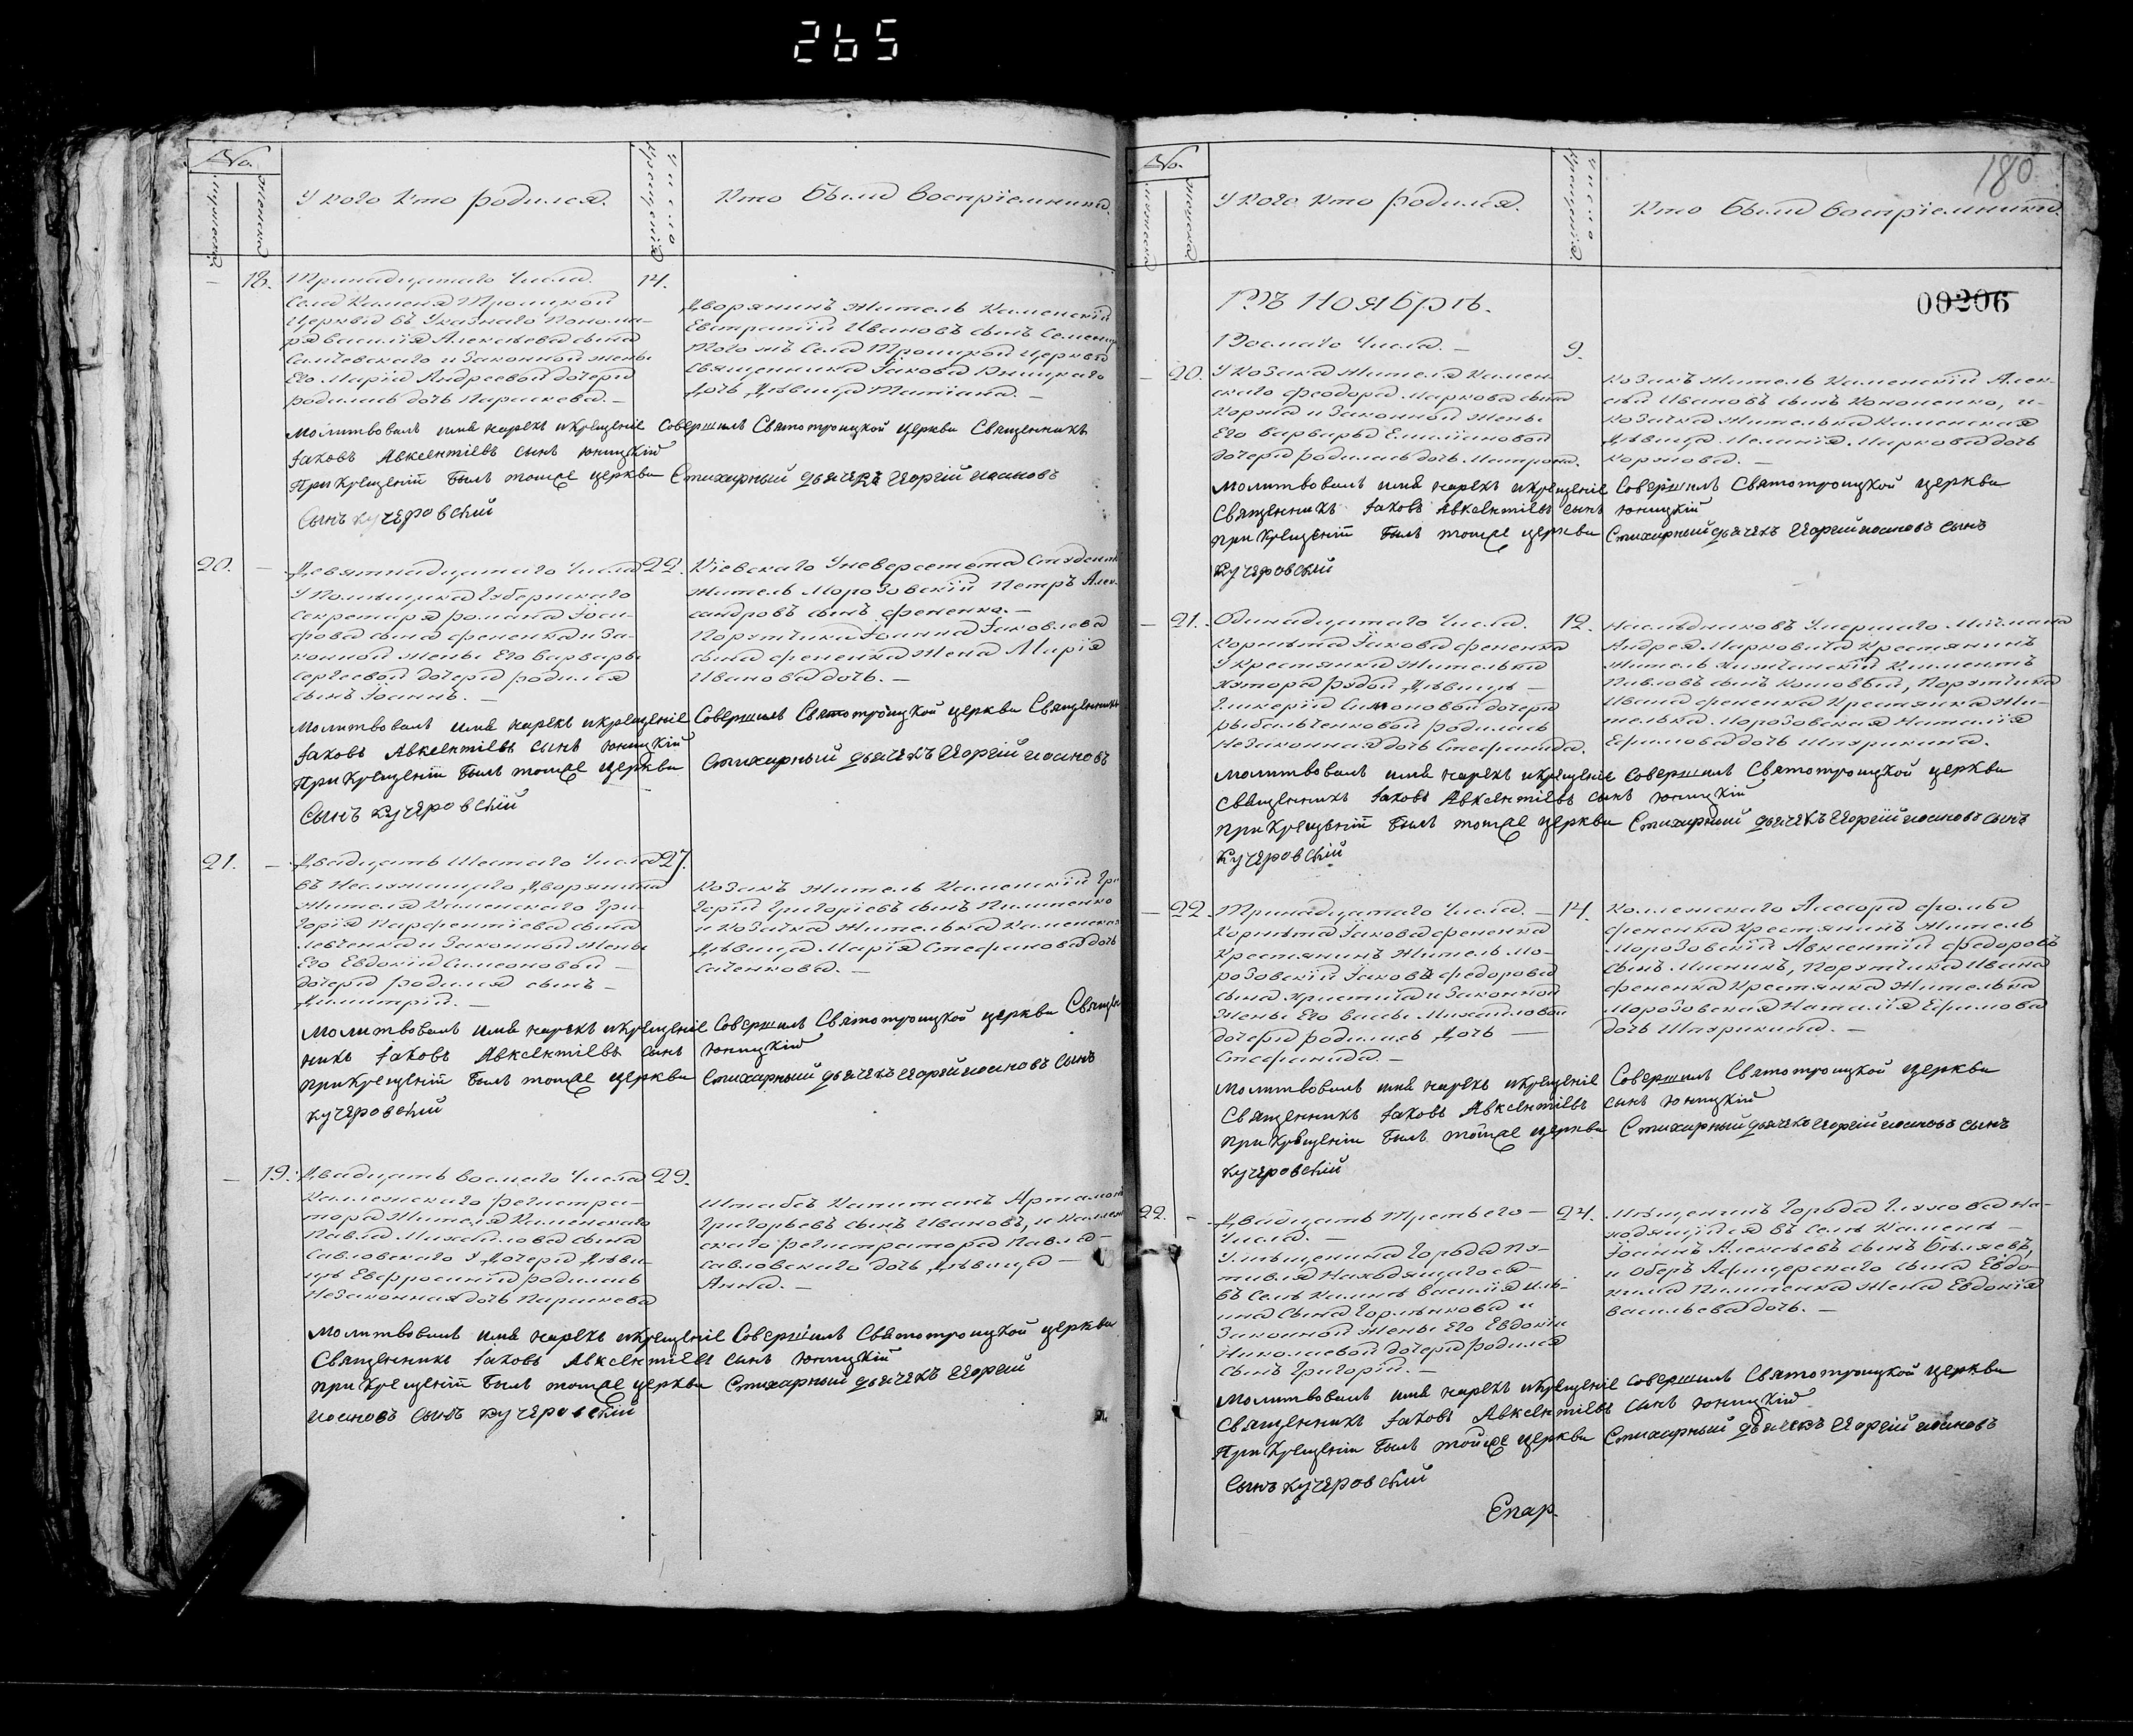 265
No.
мужеска
женска
У кого кто родился.
Число крещенія
Кто были воспріемники.
18. Тринадцатаго Числа. 14.
Села Каменя Троицкой
Церквы въ Указнаго Понома-
ря Василія Алексѣева сына
и Законной жены
Его Маріи Андреевой дочери
родилась дочь Параскева.
Дворянинъ Житель Каменскій
Евстратій Ивановъ сынъ
Того жъ Села Троицкой Церквы
Священника Іакова Юницкаго
Дочь Дѣвица Татіана.
Молитвовалъ имя нарекъ и крещеніе Совершилъ Святотроицкой церкви Священникъ
Іаковъ Авксентіевъ сынъ Юницкій
При Крещеніи былъ тоияе церкви Стихарный дьячекъ Георгій иоановъ
Сынъ кучеровскій
20. Девятнадцатаго Числа 22.
У Помѣщика Губернскаго
Секретаря Романа Іоси-
фова сына Фененка и За-
конной Жены Его Варвары
Сергеевой дочери родился
сынъ Іоаннъ.
Кіевскаго Университета Студентъ
Житель Морозовскій Петръ Алек-
сандровъ сынъ Фененко.
Порутчика Іоанна Іаковлева
сына Фененка Жена Марія
Иванова дочь.
Молитвовалъ имя нарекъ и крещеніе Совершилъ Святотроицкой церкви Священникъ
Іаковъ Авксентіевъ сынъ Юницкій
При Крещеніи былъ тояже церкви Стихарный дьячекъ Георгій иоановъ
Сынъ кучеровскій
21. Двадцать Шестаго Числа 27.
въ Неслужащаго Дворянина
Жителя Каменскаго Гри-
горія Парфентіева сына
Левченка и Законной Жены
Его Евдокіи Симеоновой
дочери родился сынъ
Димитрій.
Козакъ Житель Каменскій Гри-
горій Григоріевъ сынъ Пилипенко
и Козачка Жителька Каменская
Дѣвица Марія Стефанова дочь
Молитвовалъ имя нарекъ и крещеніе Совершилъ Святотроицкой церкви Священ-
никъ Іаковъ Авксентіевъ сынъ Юницкій
При Крещеніи былъ тояже церкви Стихарный дьячекъ Георгій иоановъ сынъ
кучеровскій
19. Двадцать восмаго Числа 29.
Каллежскаго регистра-
тора Жителя Каменскаго
Павла Михайлова сына
Савловскаго У Дочери Дѣви-
цы Евфросиніи родилась
Незаконная дочь Параскева
Штабсъ Капитанъ Артамонъ
Григорьевъ сынъ Ивановъ, и Каллеж-
скаго регистратора Павла
Савловскаго дочь Дѣвица
Анна.
Молитвовалъ имя нарекъ и крещеніе Совершилъ Святотроицкой церкви
Священникъ Іаковъ Авксентіевъ сынъ Юницкій
При Крещеніи былъ тояже церкви Стихарный дьячекъ Георгій
иоановъ Сынъ кучеровскій
180
No.
мужеска
женска
У кого кто родился.
Число крещенія
Кто были воспріемники.
00206
Въ Ноябрѣ.
Восмаго Числа. 9.
20. У Козака Жителя Камен-
скаго Феодора Маркова сына
Коржа и Законной Жены
Его Варвары Емилиановой
дочери родилась дочь Матрона.
Козакъ Житель Каменскій Алек-
сѣй Ивановъ сынъ Кононенко, и
Козачка Жителька Каменская
Дѣвица Меланія Маркова дочь
Коржова.
Молитвовалъ имя нарекъ и крещеніе Совершилъ Святотроицкой церкви
Священникъ Іаковъ Авксентіевъ сынъ Юницкій
При Крещеніи былъ тояже церкви Стихарный дьячекъ Георгій иоановъ сынъ
Кучеровскій
21. Одинадцатаго Числа. 12.
Корнѣта Іакова Фененка
У Крестянки Жительки
Хутора Рудой Дѣвицы
Гликеріи Симоновой дочери
родилась
Незаконная дочь Стефанида.
Наслѣдниковъ Умершаго Мичмана
Андрея Марковича Крестянинъ
Житель Климентъ
Павловъ сынъ Коновый, Порутчика
Ивана Фененка Крестянка Жи-
телька Морозовская Наталія
Ефимова дочь Шаприкина.
Молитвовалъ имя нарекъ и крещеніе Совершилъ Святотроицкой церкви
Священникъ Іаковъ Авксентіевъ сынъ Юницкій
При Крещеніи былъ тояже церкви Стихарный дьячекъ Георгій иоановъ сынъ
Кучеровскій
22. Тринадцатаго Числа. 14.
Корнѣта Іакова Фененка
Крестянинъ Житель Мо-
розовскій Іаковъ Федорова
сына и Законной
Жены Его Вассы Михайловой
дочери родилась Дочь
Стефанида.
Коллежскаго Асесора
Фененка Крестянинъ Житель
Морозовскій Авксентій Федоровъ
сынъ Мисникъ, Порутчика Ивана
Фененка Крестянка Жителька
Морозовская Наталія Ефимова
дочь Шаприкина.
Молитвовалъ имя нарекъ и крещеніе Совершилъ Святотроицкой церкви
Священникъ Іаковъ Авксентіевъ сынъ Юницкій
При Крещеніи былъ тояже церкви Стихарный дьячекъ Георгій иоановъ сынъ
кучеровскій
22. Двадцать Третьего 24.
Числа.
У мѣщанина Города Пу-
тивля Находящагося
въ Селѣ Каменѣ Василія Иль-
ина Сына и
Законной Жены Его Евдокіи
Николаевой дочери родился
сынъ Григорій.
Мѣщанинъ Города Глухова На-
ходящійся въ Селѣ Каменѣ
Іоаннъ Алексѣевъ сынъ Бѣляевъ,
и Оберъ Афицерскаго сына Евдо-
кима Пилипенка Жена Евдокія
Васильева дочь.
Молитвовалъ имя нарекъ и крещеніе Совершилъ Святотроицкой церкви
Священникъ Іаковъ Авксентіевъ сынъ Юницкій
При Крещеніи былъ тояже церкви Стихарный дьячекъ Георгій иоановъ
Сынъ кучеровскій
Епар.